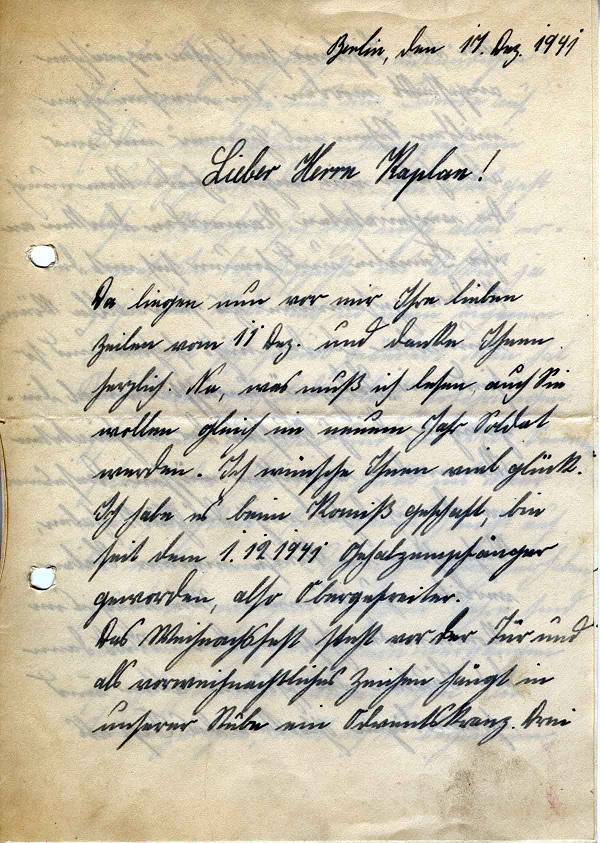 Berlin, den 17. Dez. 1941
Lieber Herrn Kaplan!
Da liegen nun vor mir Ihre lieben
Zeilen vom 11 Dez. und danke Ihnen
herzlich. Na, was muß ich lesen, auch Sie
wollen gleich im neuem Jahr Soldat
werden. Ich wünsche Ihnen viel glück.
Ich habe es beim Komiß geschafft, bin
seit dem 1.12.1941 Gehalzempfänger
geworden, also Obergefreiter.
Das Weihnachsfest steht vor der Tür und
als vorweihnachtliches Zeichen hängt in
unserer Stube ein Adventskranz. Drei